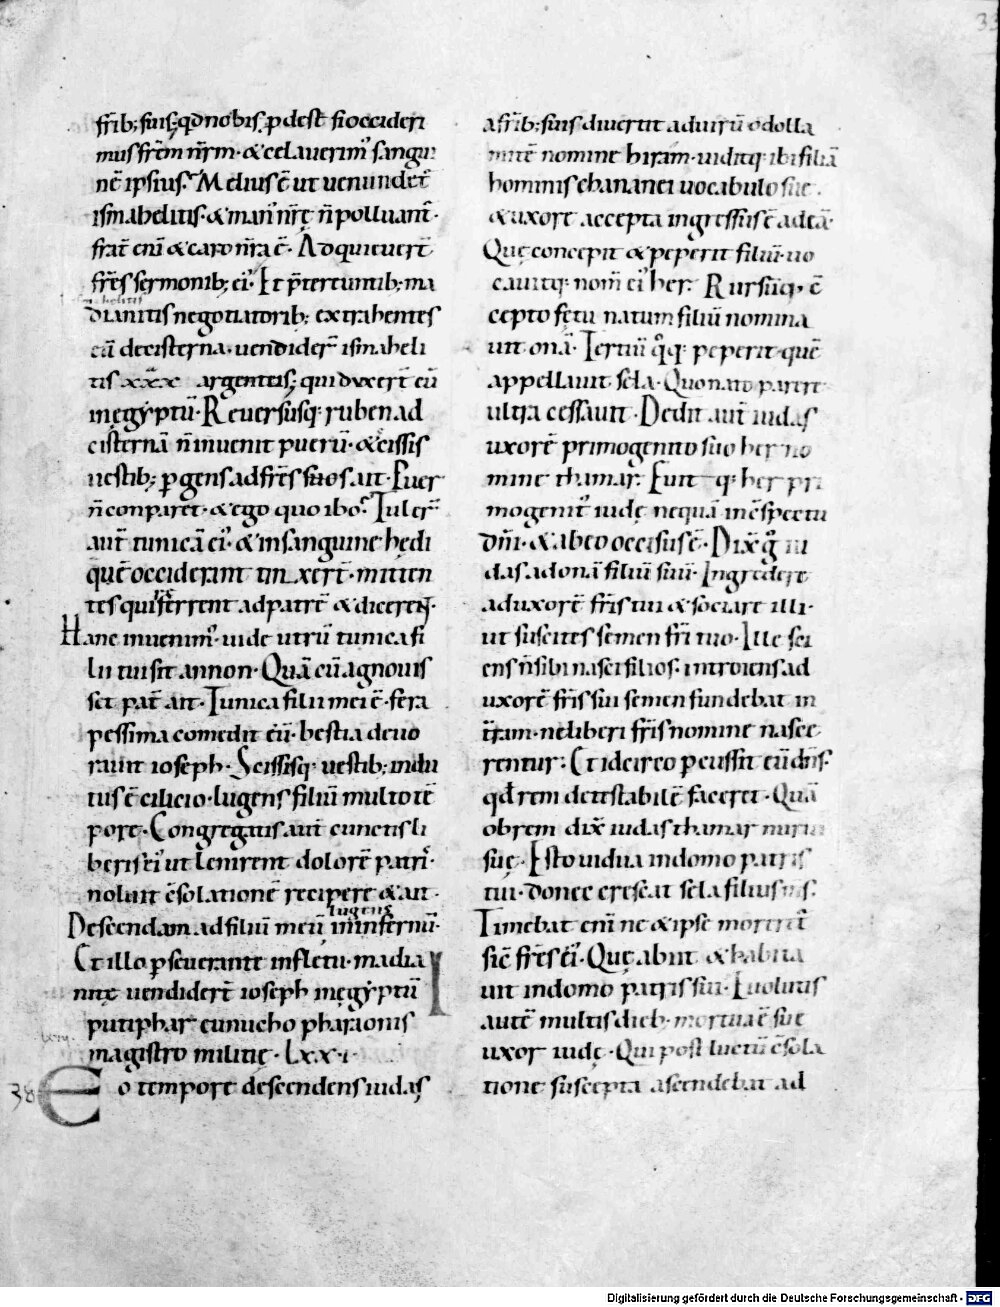 33
frib; suis; qd nobis. p dest si occideri
mus frem nrm · & celauerim' sangui
nē ipsius. Melius ē ut uenundet̄
ismahelitis · & man' nrę n̄ polluant̄ ·
frat̄ eni & caro nr̄a ē · Adquieuert̄
frēs sermonib; ei' Et p̄tereuntib; ma
dianitis negotiatorib; extrahentes
eā de cisterna · uendider̄ ismaheli
tis xxx argenteis; qui duxert̄ eū
in ęgyptū · Reuersusq; ruben ad
cisternā n̄ inuenit puerū · & scissis
uestib; pgens ad frēs suos ait · Puer
n̄ conparet · & ego quo ibo? Tuler̄
aut̄ tunicā ei' · & in sanguine hedi
quē occiderant tinxert̄ · mitten
tes qui ferrent ad patrē & dicerent ·
Hanc inuenim' · uide utrū tunica fi
lii tui sit an non · Quā cū agnouis
set pat̄ ait · Tunica filii mei ē · fera
pessima comedit eū · bestia deuo
rauit ioseph · Scissisq; uestib; indu
tus ē cilicio · lugens filiū multo tē
pore · Congregatis aut̄ cunctis li
beris ei' ut lenirent dolorē patri' ·
noluit c̄solationē recipere & ait ·
lugens
Descendam ad filiū meū in infernū ·
Et illo pseuerante in fletu · madia
nitę uendidert̄ ioseph in ęgyptū
putiphar eunucho pharaonis
magistro militię · Lxx · i ·
38 Eo tempore descendens iudas
a frib; suis diuertit ad uirū odolla
mitē nomine hiram · uiditq; ibi filiā
hominis chananei uocabulo sue ·
& uxore accepta ingressus ē ad eā ·
Quę concepit & peperit filiū · uo
cauitq; nom̄ ei' her · Rursūq; c̄
cepto fętu natum filiū nomina
uit onā · Tertiū q̊q; peperit quē
appellauit sela · Quo nato parere
ultra cessauit · Dedit aut̄ iudas
uxorē primogenito suo her no
mine thamar · Fuit q; her pri
mogenit' iudę nequā in c̄spectu
dn̄i · & ab eo occisus ē · Dix̄ g̊ iu
das ad onā filiū suū · Ingredere
ad uxorē fr̄is tui & sociare illi ·
ut suscites semen fr̄i tuo · Ille sci
ens n̄ sibi nasci filios · introiens ad
uxorē fr̄is sui semen fundebat in
tr̄am · ne liberi fr̄is nomine nasce
rentur · Et idcirco pcussit eū dn̄s ·
qd rem detestabilē faceret · Quā
obrem dix̄ iudas thamar nurui
suę · Esto uidua in domo patris
tui · donec crescat sela filius ms ·
Timebat eni ne & ipse morert̄
sic̄ frēs ei' · Quę abiit & habita
uit in domo patris sui · Euolutis
autē multis dieb; mortua ē sue
uxor iudę · Qui post luctū c̄sola
tione suscepta ascendebat ad
Digitalisierung gefördert durch die Deutsche Forschungsgemeinschaft · DFG